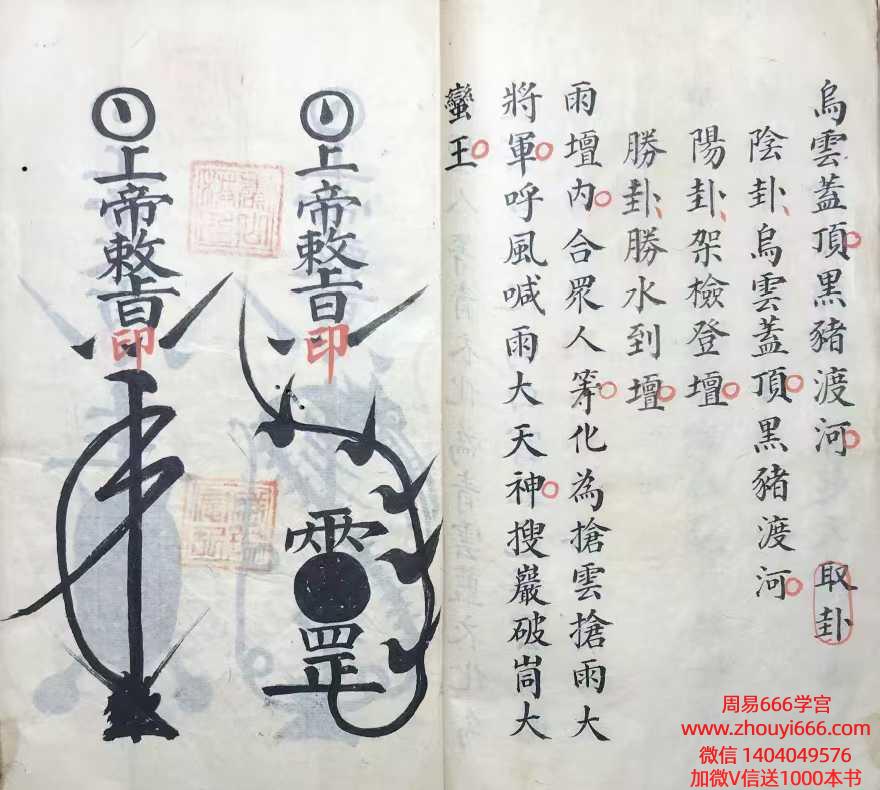 烏雲蓋頂黑豬渡河 取卦
陰卦烏雲蓋頂黑豬渡河
陽卦架檢登壇
勝卦勝水到壇
雨壇內合眾人等化為搶雲搶雨大
將軍呼風喊雨大天神搜巖破峝大
蠻王
上帝敕旨
印
雷罡
上帝敕旨
印
周易666学宫
www.zhouyi666.com
微信 1404049576
加微V信送1000本书